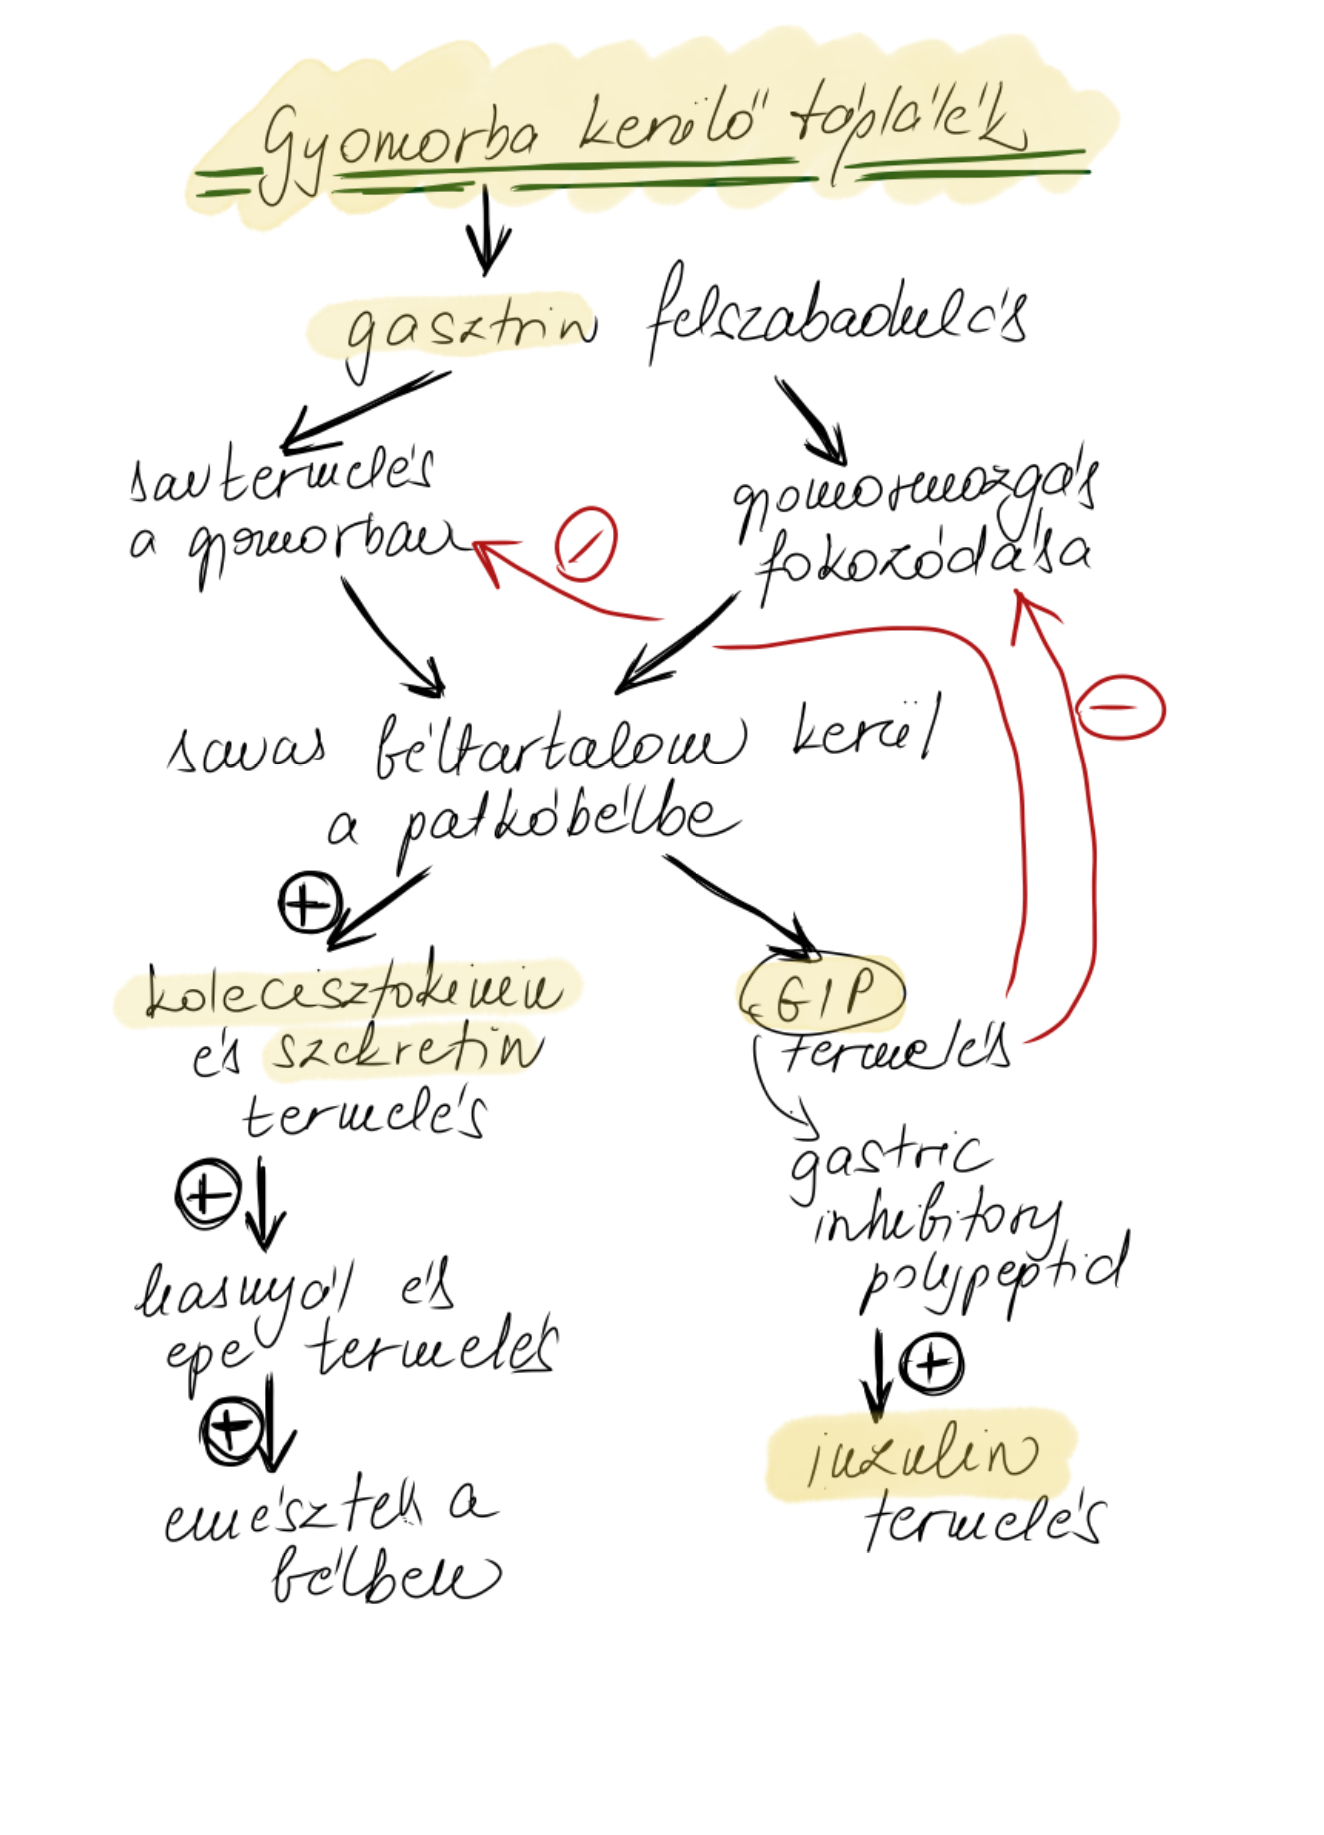 Gyomorba kerülő táplálék
gasztrin felszabadulás
savtermelés
a gyomorban
gyomormozgás
fokozódása
savas béltartalom kerül
a patkóbélbe
kolecisztokinin
és szekretin
termelés
GIP
termelés
gastric
inhibitory
polypeptid
hasnyál és
epe termelés
inzulin
termelés
emésztek a
bélben